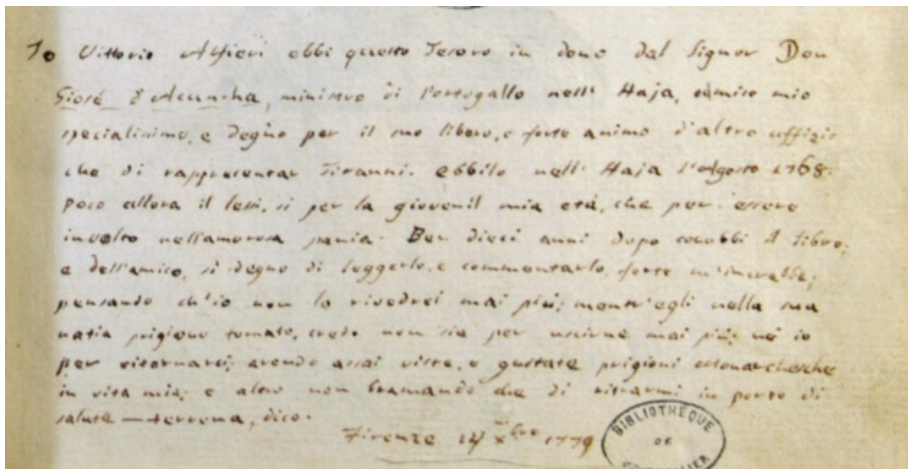 Io Vittorio Alfieri ebbi questo Tesoro in dono dal Signor Don
Giosé d'Acuncha, ministro di Portogallo nell' Haja, amico mio
specialissimo, e degno per il suo libero, e forte animo d'altro uffizio
che di rappresentar Tiranni. ebbilo nell' Haja l'Agosto 1768.
poco allora il lessi, sì per la giovenil mia età, che per essere
involto nell'amorosa pania. Ben dieci anni dopo conobbi il libro;
e dell'amico, sì degno di leggerlo, e commentarlo, forte m'increbbe;
pensando ch'io non lo rivedrei mai più; mentr'egli nella sua
natia prigione tornato, credo non sia per uscirne mai più; nè io
per ritornarci; avendo assai viste, e gustate prigioni monarchesche
in vita mia; e altro non bramando che di ritrarmi in porto di
salute — terrena, dico.
Firenze 14 Xbre 1779
BIBLIOTHÈQUE
DE